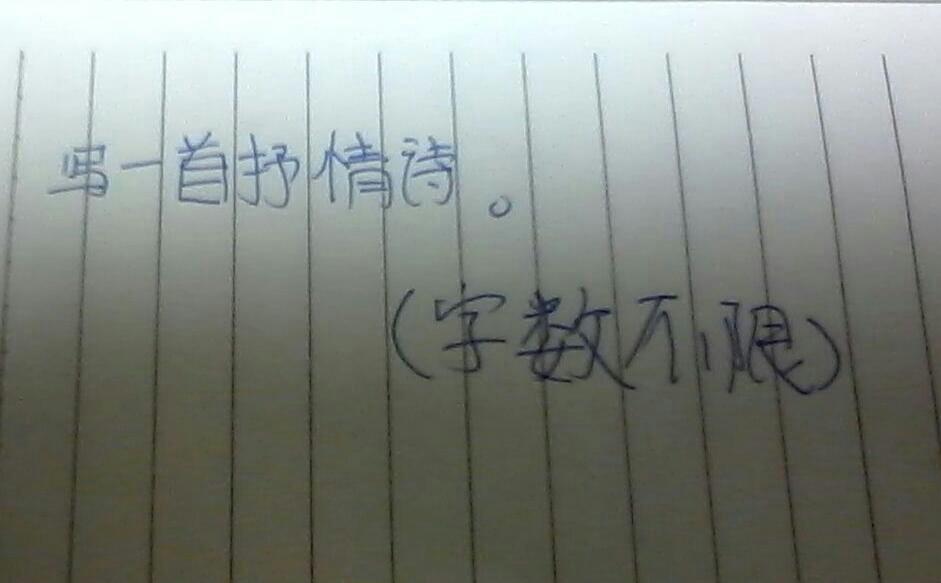 写一首抒情诗。
(字数不限)